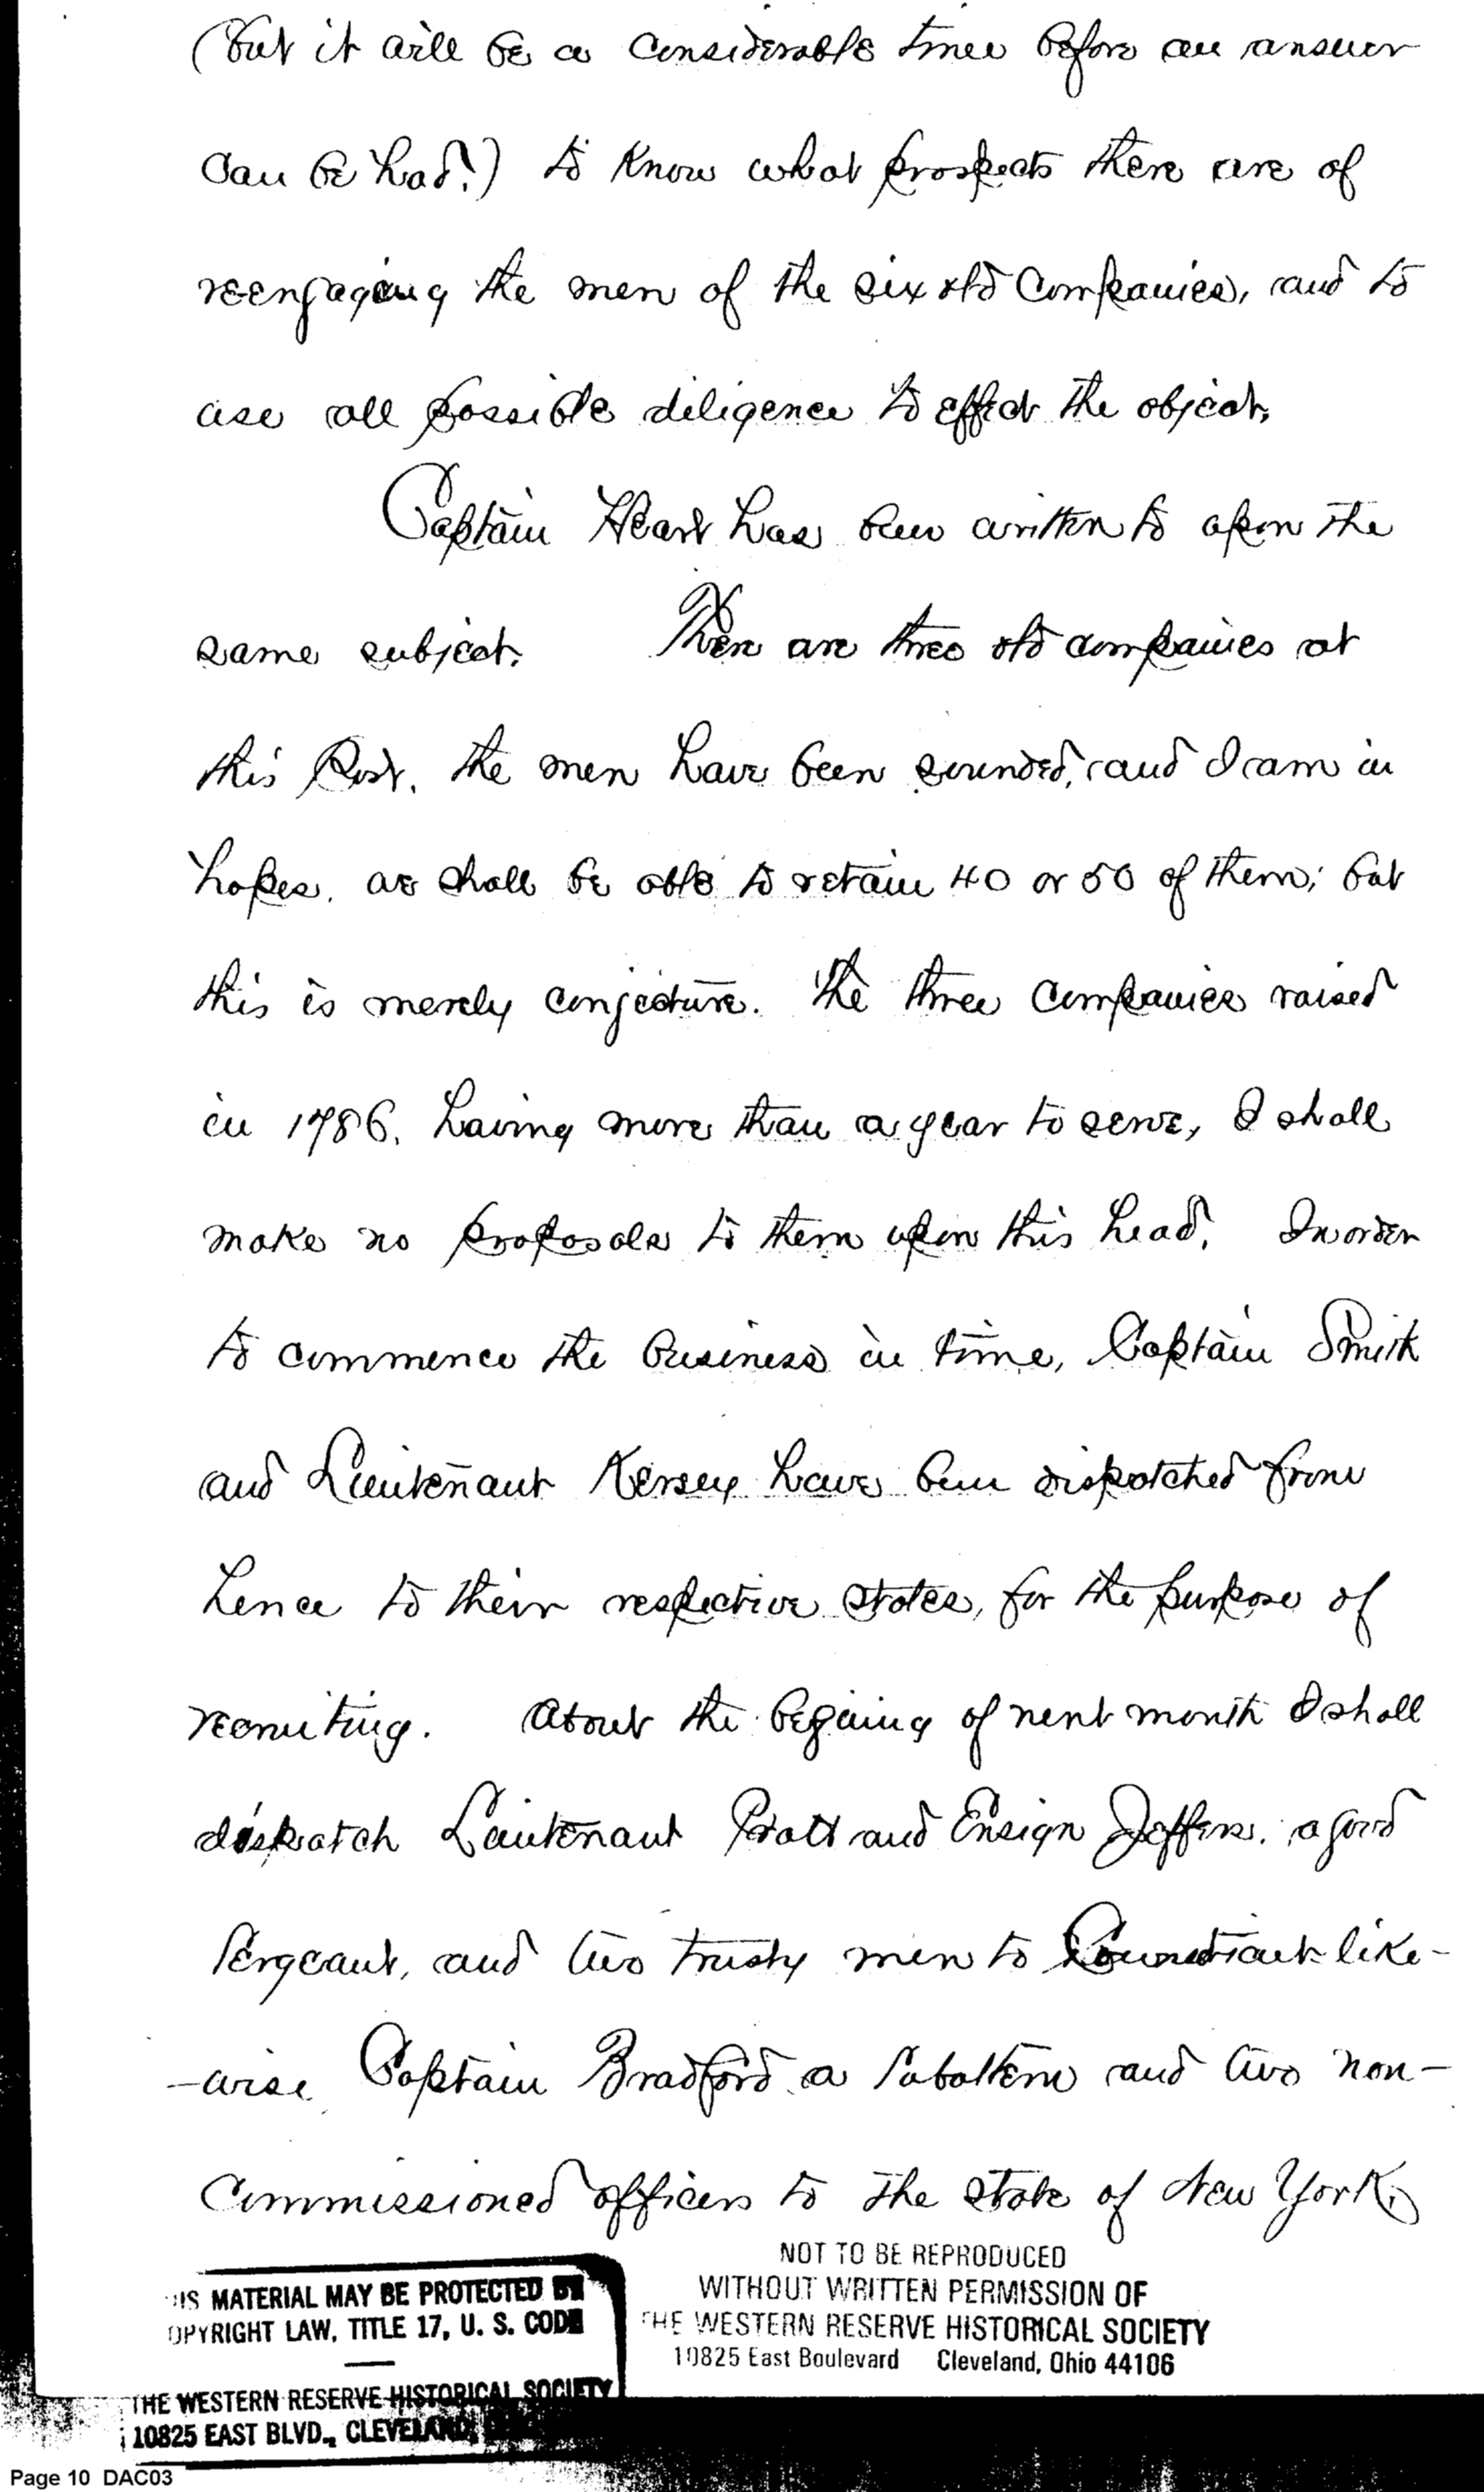 (but it will be a considerable time before an answer
can be had!) to know what prospects there are of
reengaging the men of the six old Companies, and to
use all possible diligence to effect the object.
Captain Heart has been written to upon the
same subject. There are three old companies at
this Post, the men have been sounded, and I am in
hopes, we shall be able to retain 40 or 50 of them; but
this is merely conjecture. The three Companies raised
in 1786, having more than a year to serve, I shall
make no proposals to them upon this head. In order
to commence the business in time, Captain Smith
and Lieutenant Kersey have been dispatched from
hence to their respective states, for the purpose of
recruiting. About the begining of next month I shall
dispatch Lieutenant Pratt and Ensign Jeffers, a good
Sergeant, and two trusty men to Connecticut like-
-wise Captain Bradford a Subaltern and two non-
Commissioned officers to the state of New York,
NOT TO BE REPRODUCED
WITHOUT WRITTEN PERMISSION OF
THE WESTERN RESERVE HISTORICAL SOCIETY
10825 East Boulevard Cleveland, Ohio 44106
IS MATERIAL MAY BE PROTECTED BY
OPYRIGHT LAW, TITLE 17, U. S. CODE
THE WESTERN RESERVE HISTORICAL SOCIETY
10825 EAST BLVD., CLEVELAND,
Page 10 DAC03